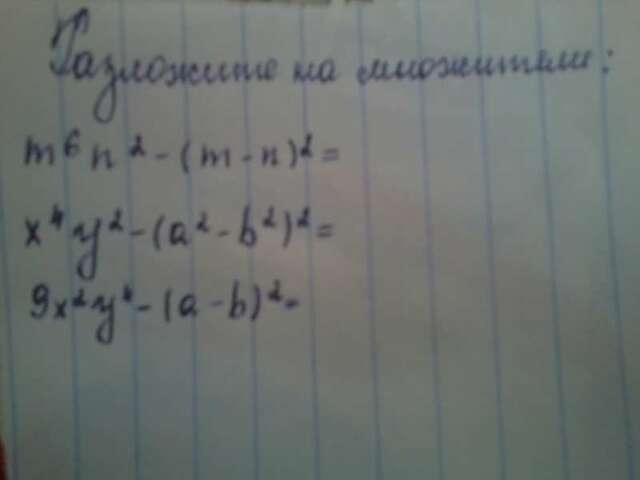 Разложите на множители:
m⁶n² - (m - n)² =
x⁴y² - (a² - b²)² =
9x²y⁴ - (a - b)² =